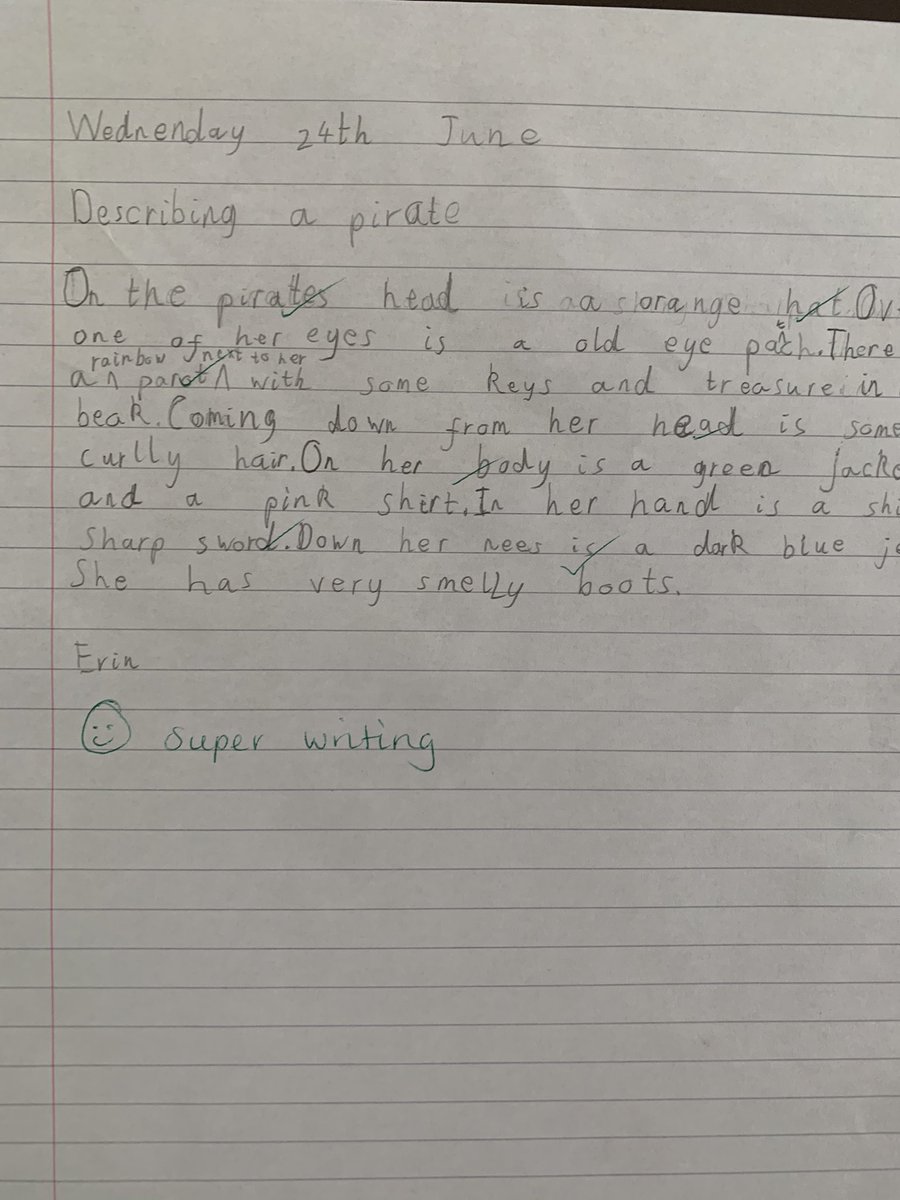 Wednenday 24th June
Describing a pirate
On the pirates head is a orange hat. Ov
one of her eyes is a old eye patch. There
rainbow next to her
a ∧ parot ∧ with some keys and treasure in
beak. Coming down from her head is some
curlly hair. On her body is a green jacke
and a pink shirt. In her hand is a shi
sharp sword. Down her nees is a dark blue je
She has very smelly boots.
Erin
super writing